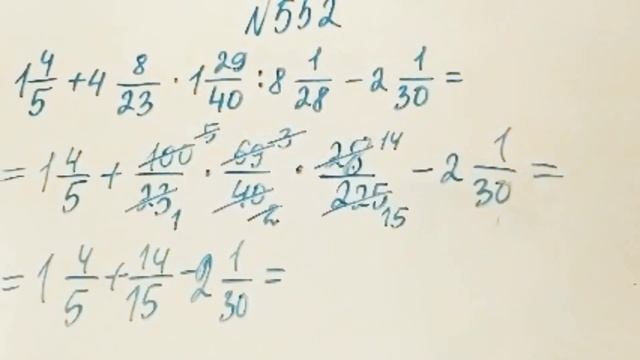 N552
1 4/5 + 4 8/23 · 1 29/40 : 8 1/28 − 2 1/30 =
= 1 4/5 + 100/23 · 69/40 · 28/225 − 2 1/30 =
5 3 14
1 2 15
= 1 4/5 + 14/15 − 2 1/30 =